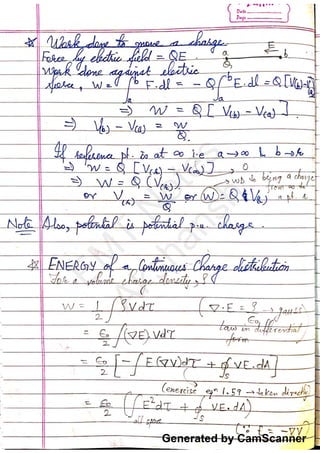 Date
Page
Work done to move a charge.
Force by electric field = QE
E
a b
Q
Work done against electric
force, W = - ∫ₐᵇ F.dl = - Q ∫ₐᵇ E.dl = Q [V(b) - V(a)]
⇒ W = Q [ V(b) - V(a) ]
⇒ V(b) - V(a) = W/Q
If reference pt. is at ∞ i.e a → ∞ & b → r
⇒ W = Q [ V(r) - V(∞) ] → 0
⇒ W = Q (V(r)) → WD to bring a charge
from ∞ to
a pt. r
or V(r) = W/Q or W = Q V(r)
Note Also, potential is potential p.u. charge.
ENERGY of a Continuous Charge distribution
For a volume charge density, ρ
W = 1/2 ∫ ρVdτ ( ∇.E = ρ/ε₀ → gauss
law in differential
form )
= ε₀/2 ∫ (∇E) Vdτ
= ε₀/2 [ - ∫ E (∇V) dτ + ∮ₛ VE.dA ]
(exercise eqⁿ 1.59 → taken directly)
= ε₀/2 ( ∫ E²dτ + ∮ₛ VE.dA )
all space
(∵ E = -∇V)
Generated by CamScanner